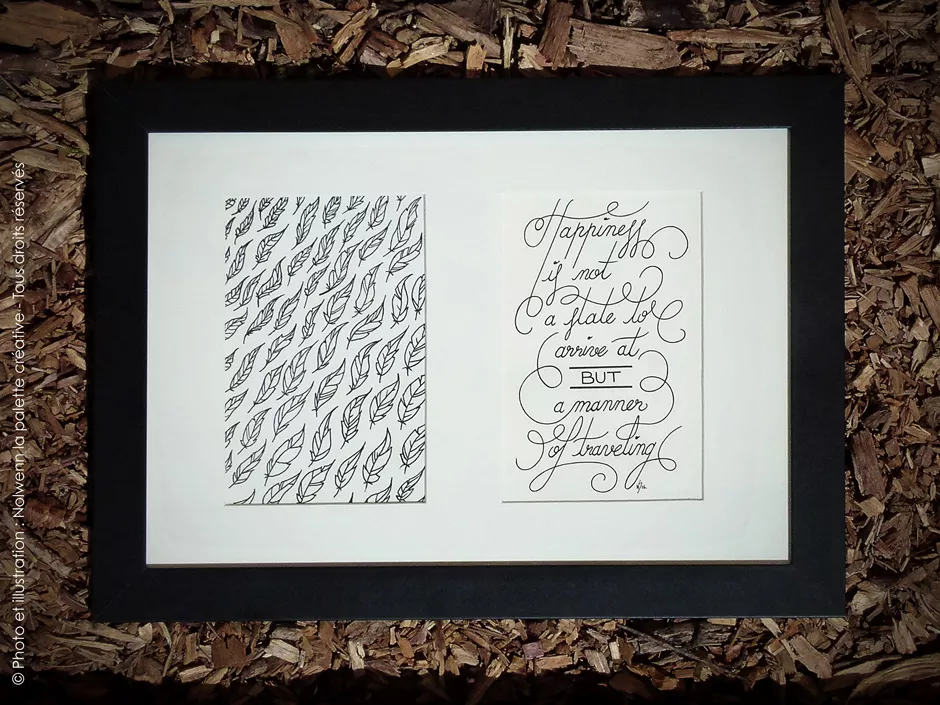 Happiness
is not
a state to
arrive at
BUT
a manner
of traveling
© Photo et illustration : Nolwenn la palette créative - Tous droits réservés